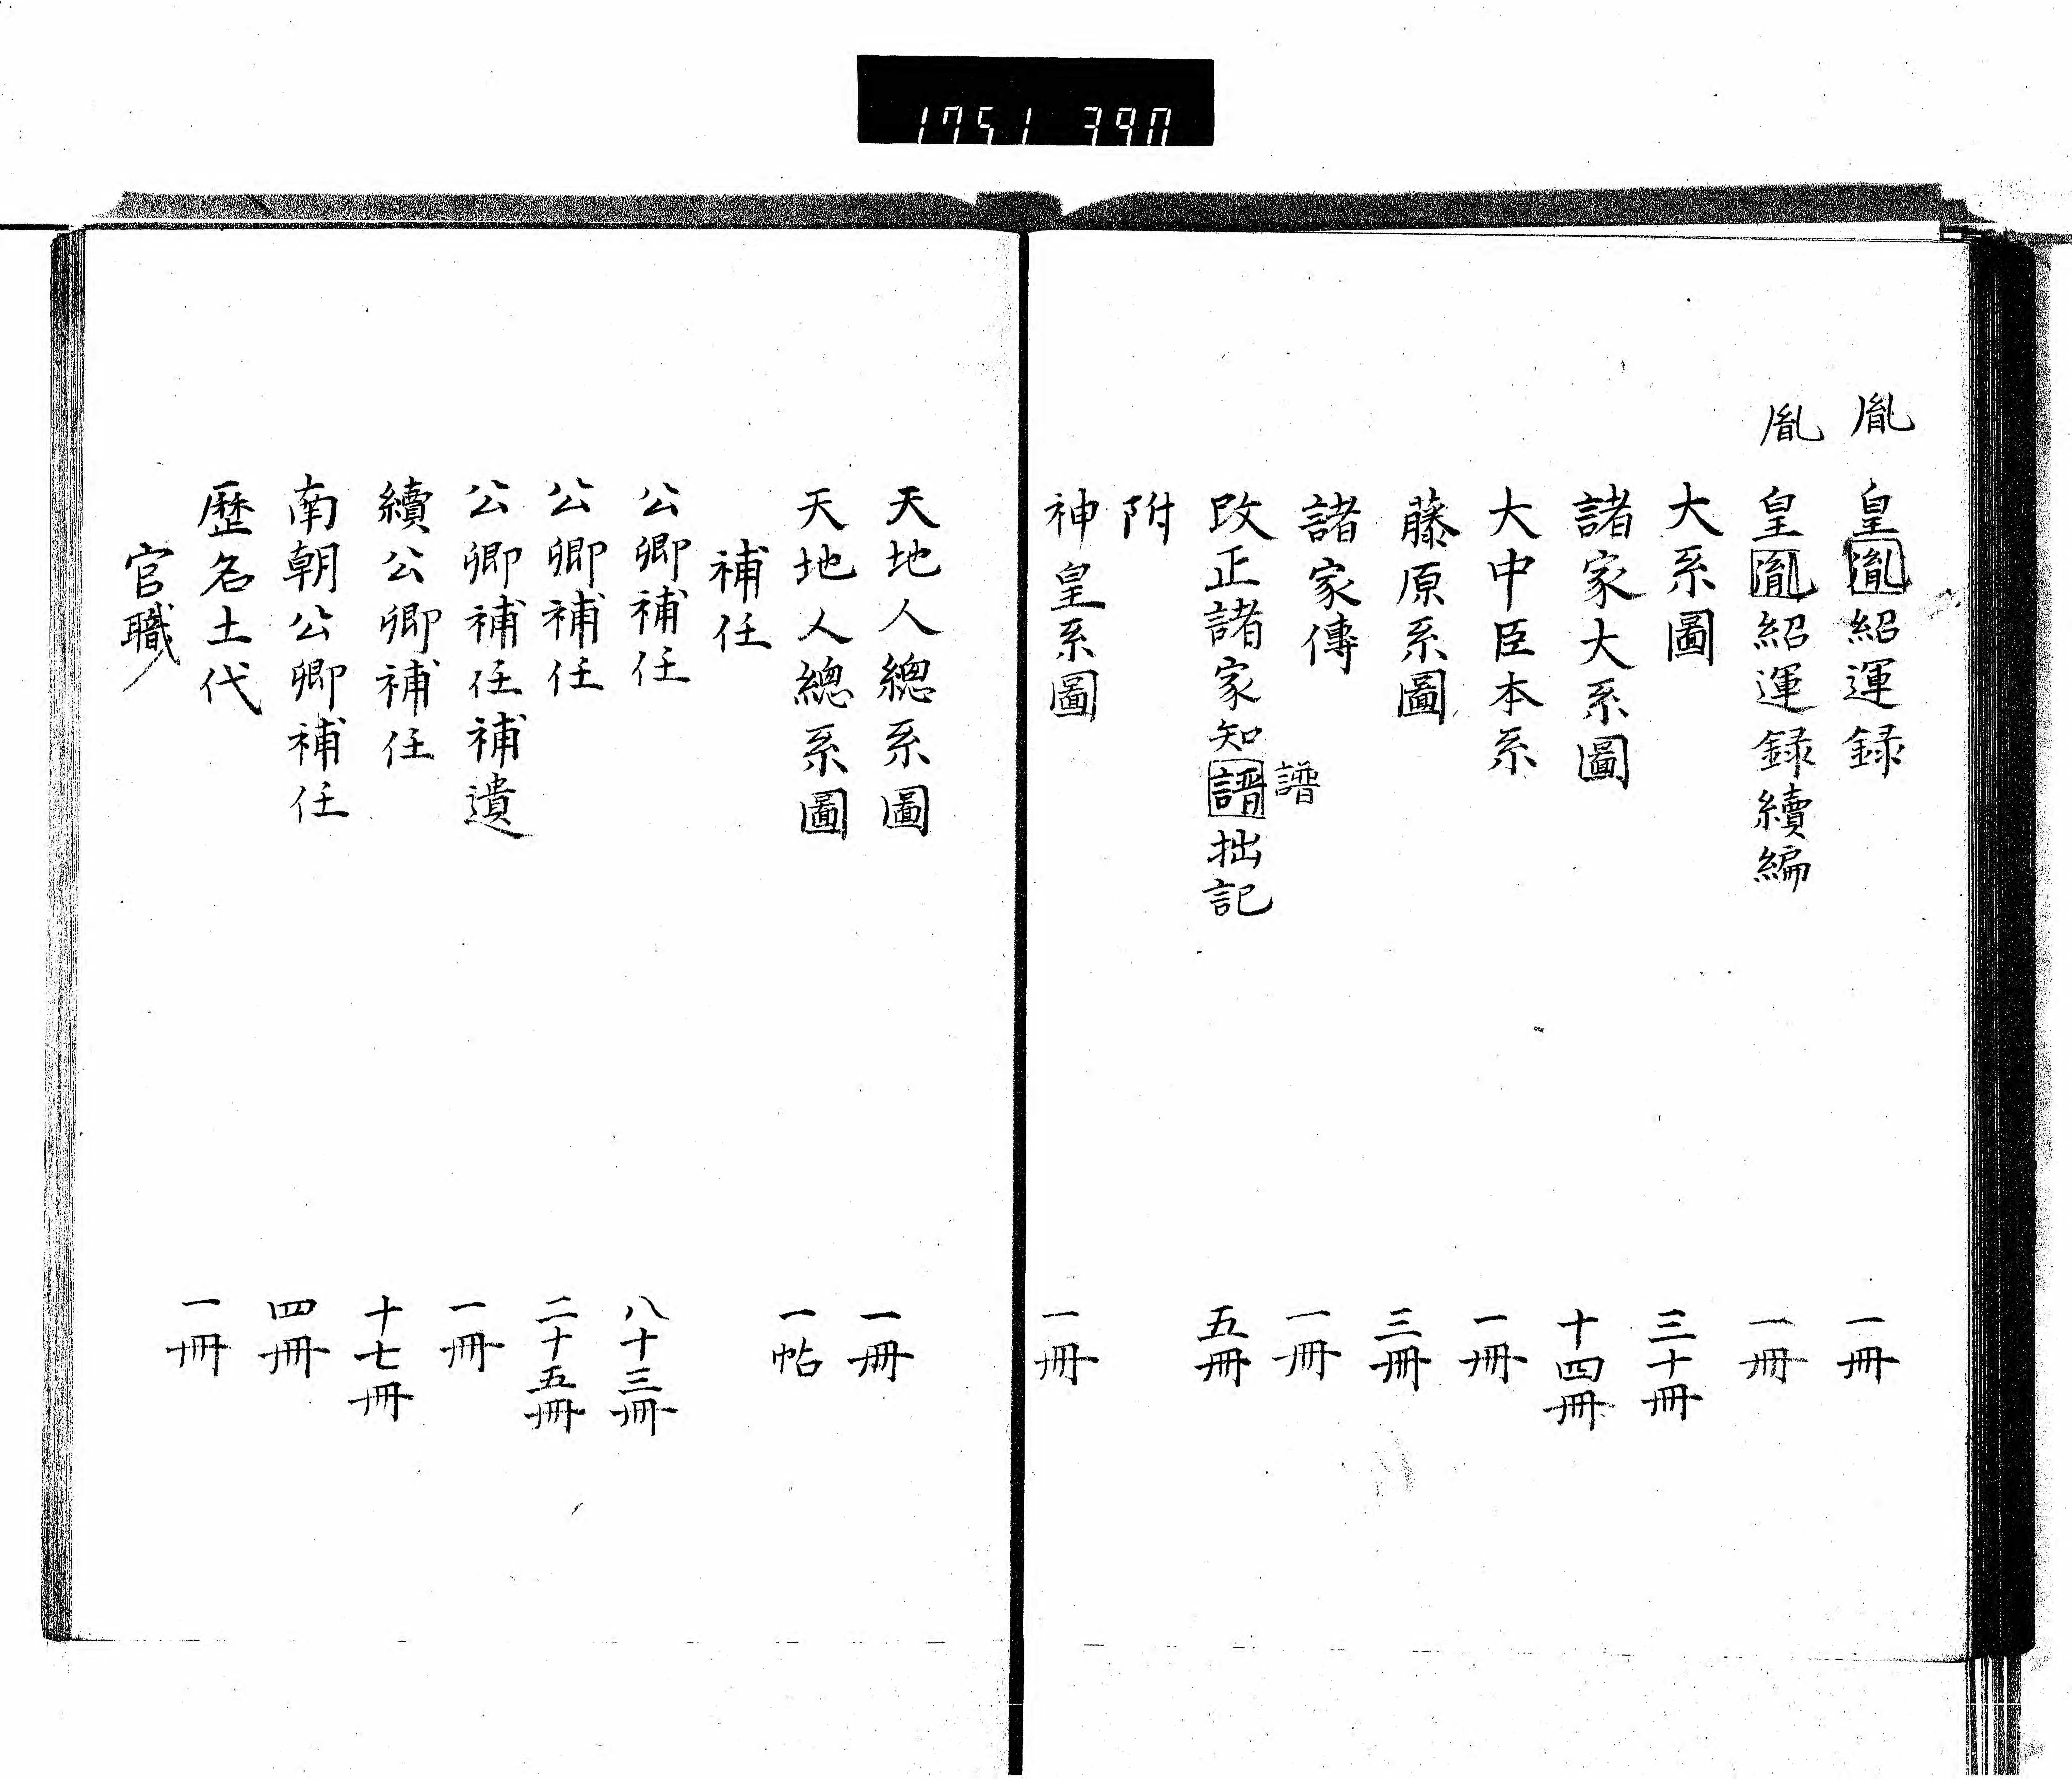 1751 390
胤
皇胤紹運録 一冊
胤
皇胤紹運録續編 一冊
大系圖 三十冊
諸家大系圖 十四冊
大中臣本系 一冊
藤原系圖 三冊
諸家傳 一冊
譜
改正諸家知譜拙記 五冊
附
神皇系圖 一冊
天地人總系圖 一冊
天地人總系圖 一帖
補任
公卿補任 八十三冊
公卿補任 二十五冊
公卿補任補遺 一冊
續公卿補任 十七冊
南朝公卿補任 四冊
歷名土代 一冊
官職